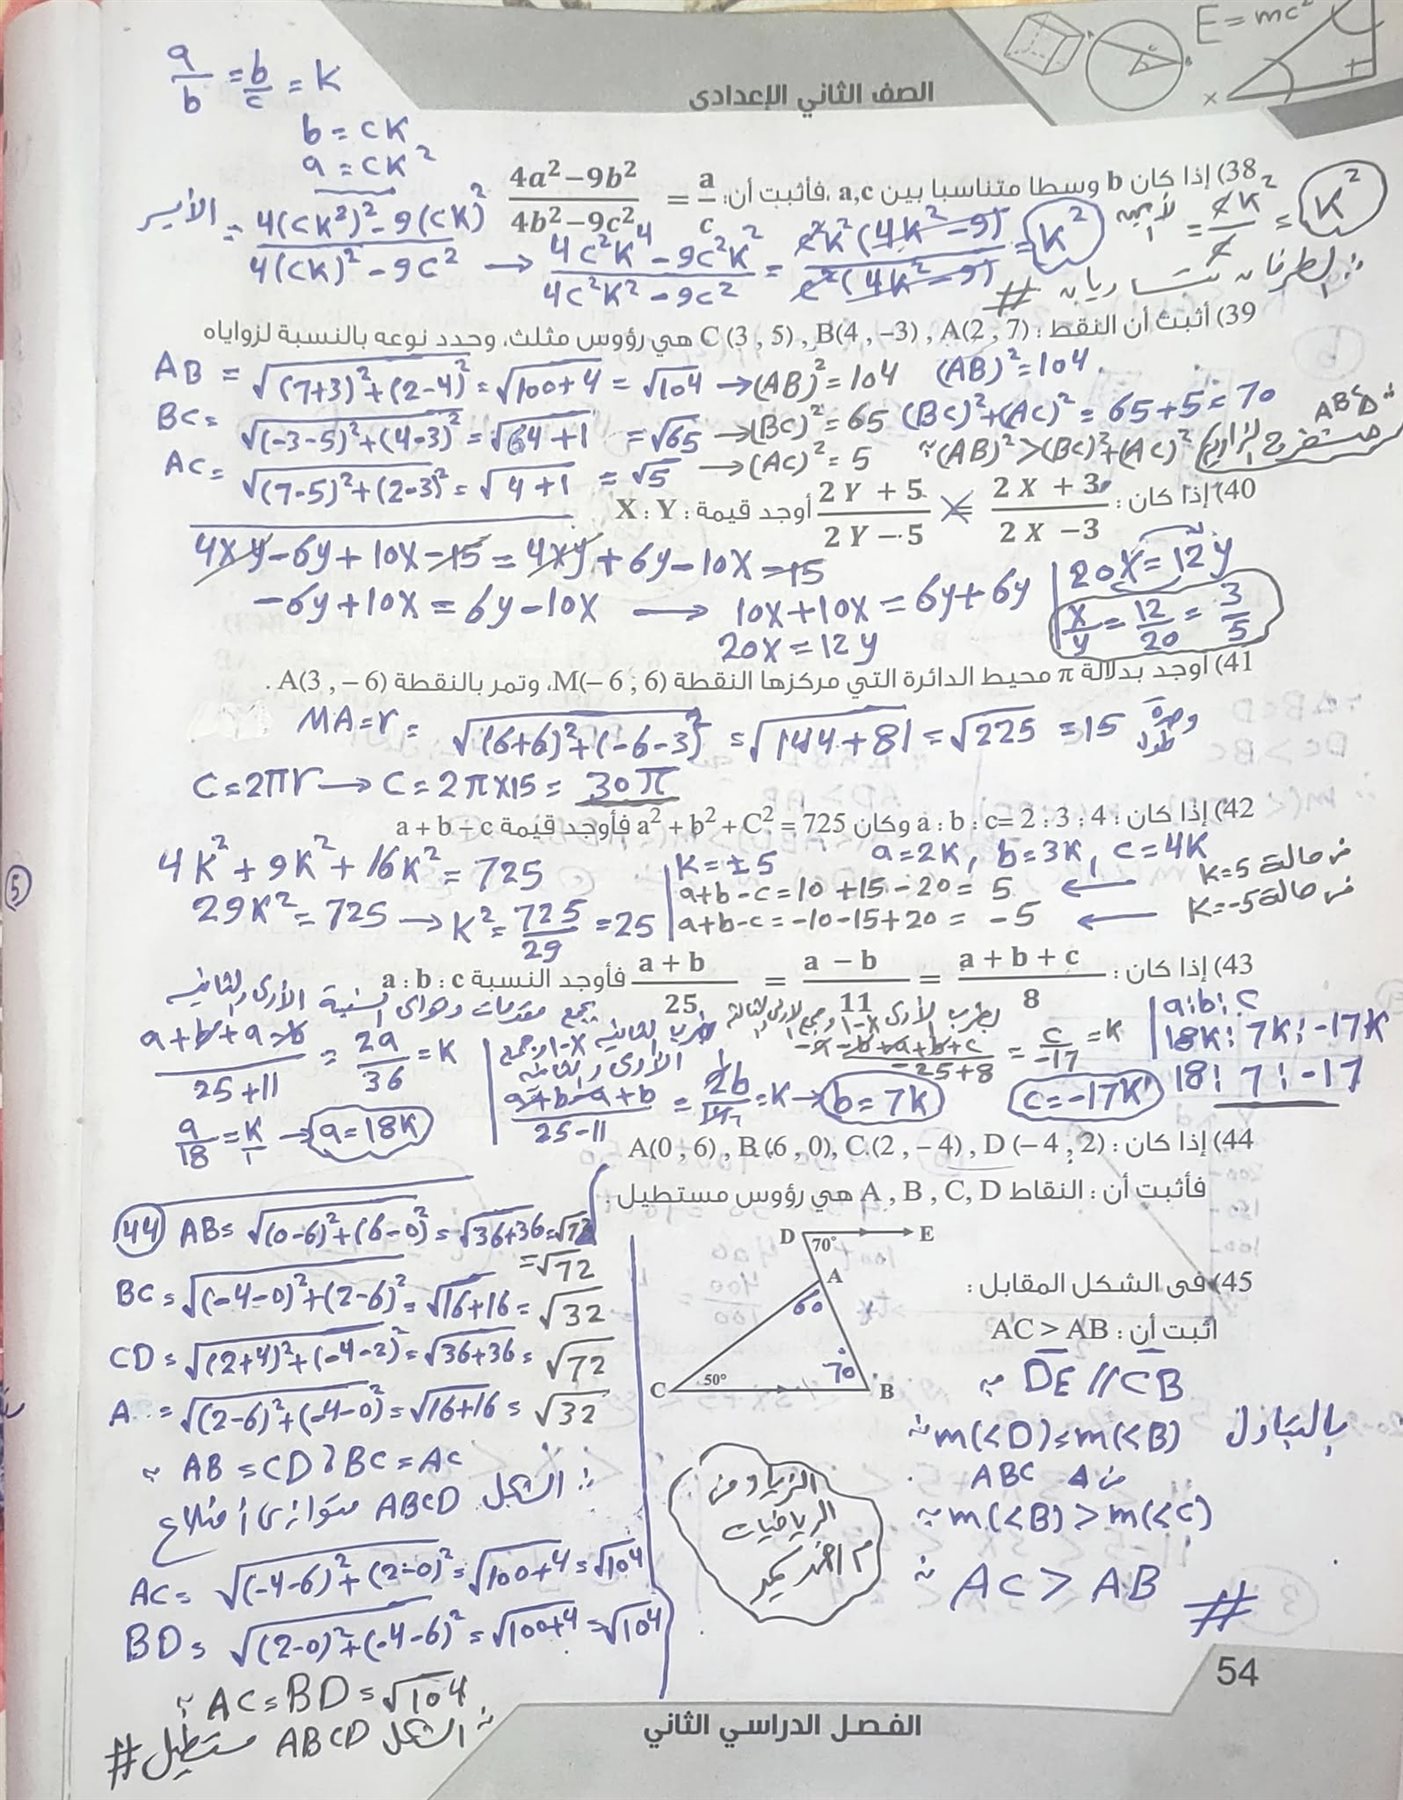 E = mc²
الصف الثاني الإعدادى
a/b = b/c = K
b = CK
a = CK²
38) إذا كان b وسطا متناسبا بين a,c ،فأثبت أن: (4a²−9b²)/(4b²−9c²) = a/c
الأيسر = (4(CK²)² - 9(CK)²)/(4(CK)² - 9C²) → (4C²K⁴ - 9C²K²)/(4C²K² - 9C²) = C²K²(4K²-9)/C²(4K²-9) = K²
الأيمن = CK²/C = K²
∴ الطرفان متساويان #
39) أثبت أن النقط : A(2 , 7) , B(4 , −3) , C (3 , 5) هي رؤوس مثلث، وحدد نوعه بالنسبة لزواياه
AB = √((7+3)²+(2-4)²) = √(100+4) = √104 → (AB)² = 104 (AB)² = 104.
BC = √((-3-5)²+(4-3)²) = √(64+1) = √65 → (BC)² = 65 (BC)²+(AC)² = 65+5 = 70
AC = √((7-5)²+(2-3)²) = √(4+1) = √5 → (AC)² = 5 ∵ (AB)² > (BC)²+(AC)²
منفرج الزاوية
40) إذا كان : (2X + 3)/(2X − 3) = (2Y + 5)/(2Y − 5) أوجد قيمة : X : Y
4xy - 6y + 10x - 15 = 4xy + 6y - 10x - 15
-6y + 10x = 6y - 10x → 10x + 10x = 6y + 6y
20x = 12y
20x = 12y
x/y = 12/20 = 3/5
41) أوجد بدلالة π محيط الدائرة التي مركزها النقطة M(− 6 , 6)، وتمر بالنقطة A(3 , − 6) .
MA = r = √((6+6)²+(-6-3)²) = √(144+81) = √225 = 15 وحدة طول
C = 2πr → C = 2π×15 = 30π
42) إذا كان : a : b : c= 2 : 3 : 4 وكان a² + b² + C² = 725 فأوجد قيمة a + b − c
4K² + 9K² + 16K² = 725
29K² = 725 → K² = 725/29 = 25
K = ±5 a = 2K, b = 3K, c = 4K
a+b-c = 10 + 15 - 20 = 5 ← في حالة K=5
a+b-c = -10-15+20 = -5 ← في حالة K=-5
5
43) إذا كان : (a + b + c)/8 = (a − b)/11 = (a + b)/25 فأوجد النسبة a : b : c
بجمع مقدمات وتوالى النسبة الأولى والثانية
(a+b+a-b)/(25+11) = 2a/36 = K
a/18 = K/1 → a = 18K
بضرب الثانية ×-1 وجمع الأولى والثانية
(a+b-a+b)/(25-11) = 2b/14 = K → b = 7K
بضرب الأولى ×-1 وجمع الأولى والثالثة
(-a-b+a+b+c)/(-25+8) = c/-17 = K
c = -17K
a : b : c
18K : 7K : -17K
18 : 7 : -17
44) إذا كان : A(0 , 6) , B (6 , 0), C (2 , − 4) , D (− 4 , 2)
فأثبت أن : النقاط A , B , C, D هي رؤوس مستطيل :
44 AB = √((0-6)²+(6-0)²) = √(36+36) = √72
= √72
BC = √((-4-0)²+(2-6)²) = √(16+16) = √32
CD = √((2+4)²+(-4-2)²) = √(36+36) = √72
A = √((2-6)²+(-4-0)²) = √(16+16) = √32
∵ AB = CD , BC = AC
∴ الشكل ABCD متوازى أضلاع
AC = √((-4-6)²+(2-0)²) = √(100+4) = √104
BD = √((2-0)²+(-4-6)²) = √(100+4) = √104
∵ AC = BD = √104
∴ الشكل ABCD مستطيل #
45) فى الشكل المقابل :
اثبت أن : AC > AB
D E
70°
A
60
70
50°
C B
∵ DE // CB
∴ m(<D) = m(<B) بالتبادل
في Δ ABC
∵ m(<B) > m(<C)
∴ AC > AB #
الرياضيات
54
الفصل الدراسي الثاني